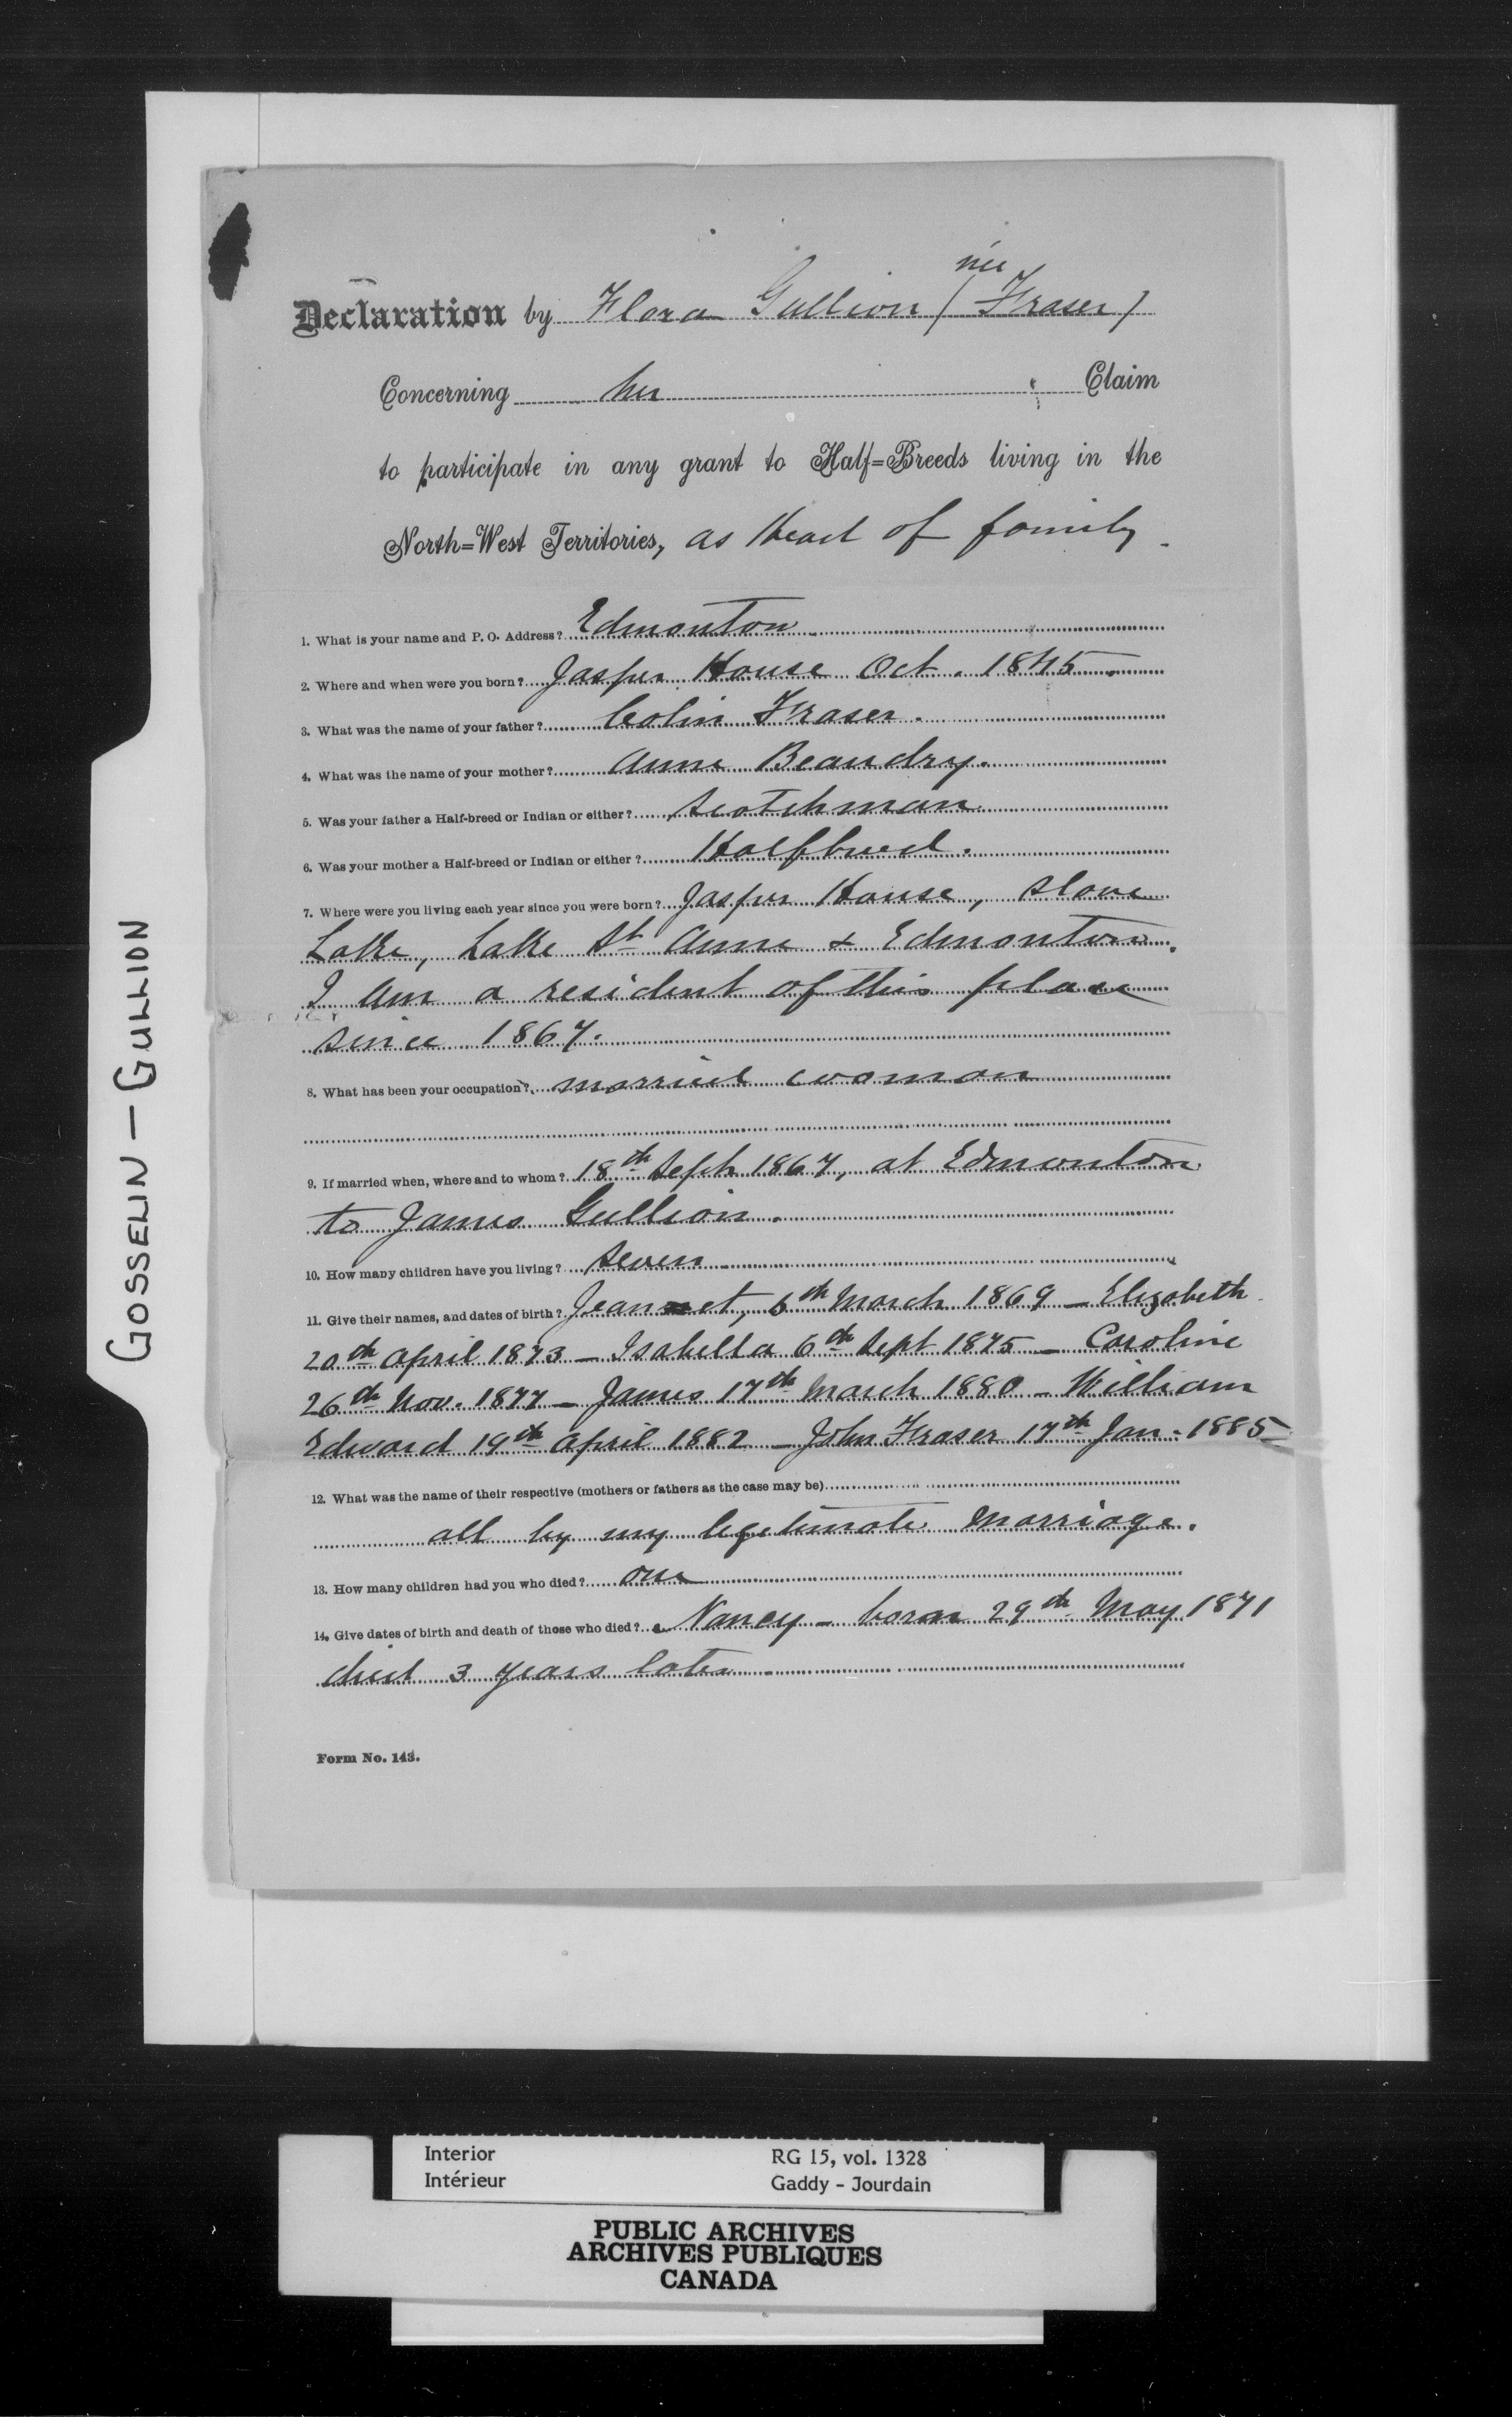 née
Declaration by Flora Gullion (Fraser)
Concerning her Claim
to participate in any grant to Half=Breeds living in the
North=West Territories, as Head of family.
1. What is your name and P. O. Address? Edmonton
2. Where and when were you born? Jasper House Oct. 1845.
3. What was the name of your father? Colin Fraser.
4. What was the name of your mother? Anne Beaudry.
5. Was your father a Half-breed or Indian or either? Scotchman.
6. Was your mother a Half-breed or Indian or either? Halfbreed.
7. Where were you living each year since you were born? Jasper House, Slave
Lake, Lake St Anne & Edmonton.
I am a resident of this place
since 1867.
8. What has been your occupation? married woman
9. If married when, where and to whom? 18th Sept 1867, at Edmonton
to James Gullion.
10. How many children have you living? seven
11. Give their names, and dates of birth? Jeannet, 6th March 1869 — Elizabeth
20th April 1873 — Isabella 6th Sept 1875 — Caroline
26th Nov. 1877 — James 17th March 1880 — William
Edward 19th April 1882 — John Fraser 17th Jan. 1885
12. What was the name of their respective (mothers or fathers as the case may be)
all by my legetimate marriage.
13. How many children had you who died? one
14. Give dates of birth and death of those who died? Nancy — born 29th May 1871
died 3 years later
Form No. 143.
GOSSELIN — GULLION
Interior RG 15, vol. 1328
Intérieur Gaddy - Jourdain
PUBLIC ARCHIVES
ARCHIVES PUBLIQUES
CANADA